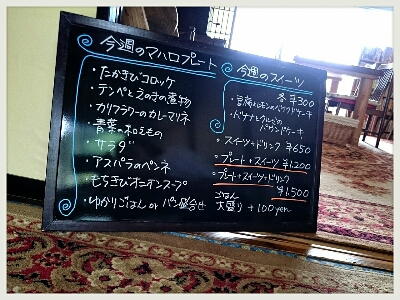 今週のマハロプレート
・たかきびコロッケ
・テンペとえのきの煮物
・カリフラワーのカレーマリネ
・青菜の和えもの
・サラダ
・アスパラのペンネ
・もちきびオニオンスープ
・ゆかりごはん or パン盛合せ
今週のスイーツ
各 ¥300
・甘酒レモンのベイクドケーキ
・バナナとクルミの
パウンドケーキ
・スイーツ+ドリンク ¥650
・プレート+スイーツ ¥1,200
・プレート+スイーツ+ドリンク
¥1,500
ごはん
大盛り +100yen